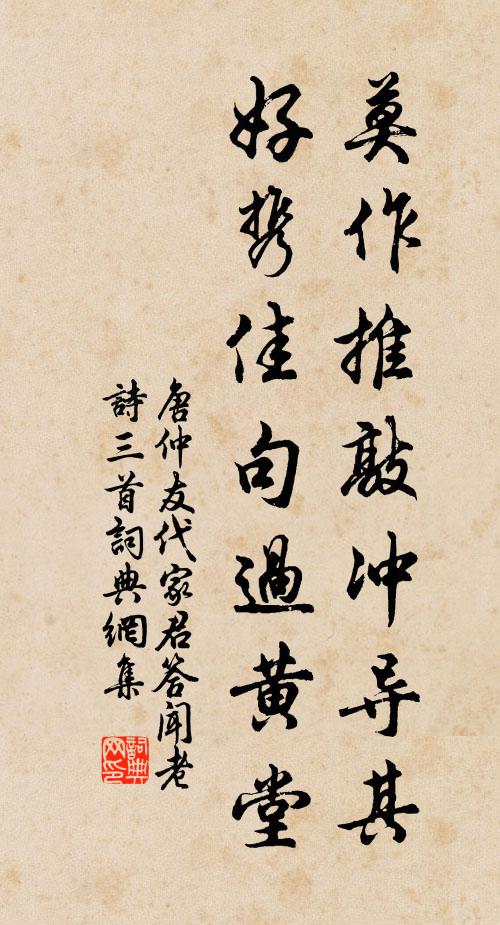 莫作推敲冲导其
好携佳句過黄堂
唐仲友代家君答闻老
詩三首詞典網集
詞典网印